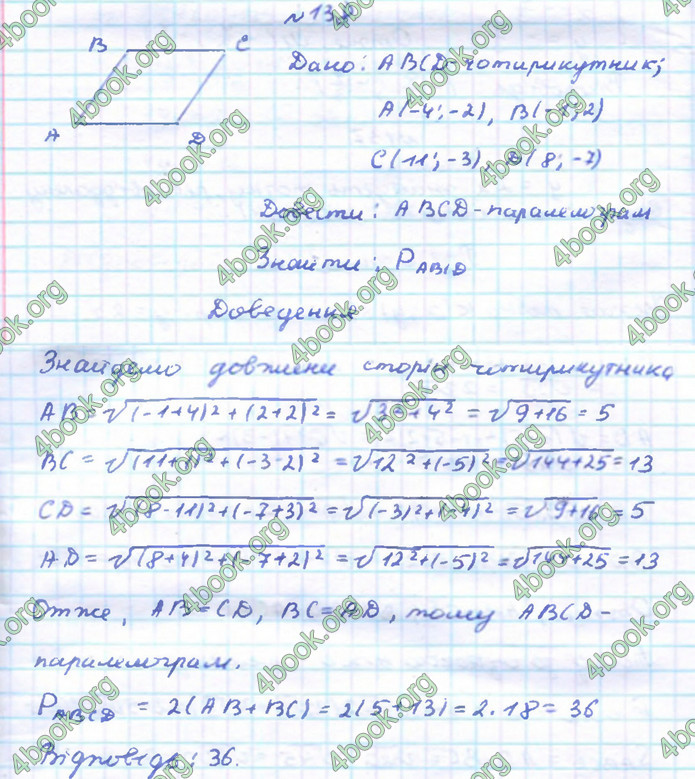 B C
A D
Дано: ABCD-чотирикутник;
A(-4; -2), B(-1; 2)
C(11; -3), D(8; -7)
Довести: ABCD-паралелограм
Знайти: P_ABCD
Доведення
Знайдемо довжини сторін чотирикутника
AB = √(-1+4)²+(2+2)² = √3²+4² = √9+16 = 5
BC = √(11+1)²+(-3-2)² = √12²+(-5)² = √144+25 = 13
CD = √(8-11)²+(-7+3)² = √(-3)²+(-4)² = √9+16 = 5
AD = √(8+4)²+(-7+2)² = √12²+(-5)² = √144+25 = 13
Отже, AB=CD, BC=AD, тому ABCD-
паралелограм.
P_ABCD = 2(AB+BC) = 2(5+13) = 2·18 = 36
Відповідь: 36.
4book.org